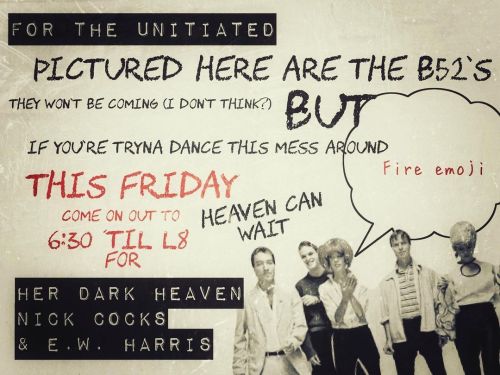 FOR THE UNITIATED
PICTURED HERE ARE THE B52'S
THEY WON'T BE COMING (I DON'T THINK?)
BUT
IF YOU'RE TRYNA DANCE THIS MESS AROUND
Fire emoji
THIS FRIDAY
COME ON OUT TO
HEAVEN CAN
WAIT
6:30 'TIL L8
FOR
HER DARK HEAVEN
NICK COCKS
& E.W. HARRIS